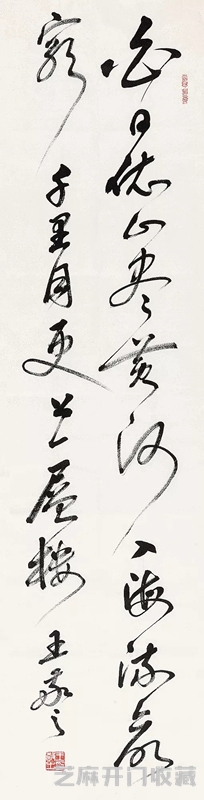 白日依山尽黄河入海流欲
窮千里目更上一層樓 王敬之
芝麻开门收藏